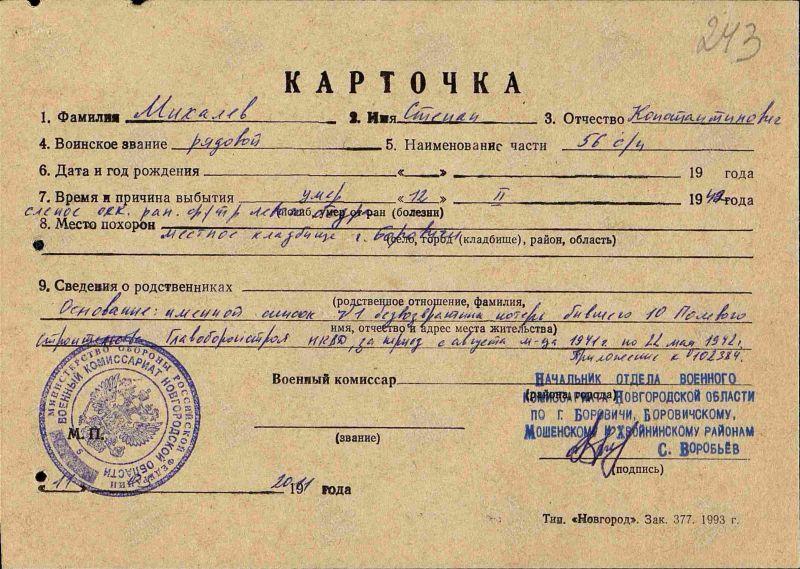 243
КАРТОЧКА
1. Фамилия Михалев 2. Имя Степан 3. Отчество Константинович
4. Воинское звание рядовой 5. Наименование части 56
6. Дата и год рождения « » 19 года
7. Время и причина выбытия умер « 12 » II 1942 года
слепое оск. ран.
(погиб, умер от ран (болезни)
8. Место похорон местное кладбище г. Боровичи
(село, город (кладбище), район, область)
9. Сведения о родственниках
(родственное отношение, фамилия,
Основание: именной список №1 безвозвратных потерь бывшего 10 Полевого
имя, отчество и адрес места жительства)
Строительства Главоборонстроя НКВД, за период с августа м-ца 1941г. по 22 мая 1942г.
Приложение к 102384.
Военный комиссар
(района, города)
НАЧАЛЬНИК ОТДЕЛА ВОЕННОГО
КОМИССАРИАТА НОВГОРОДСКОЙ ОБЛАСТИ
ПО Г. БОРОВИЧИ, БОРОВИЧСКОМУ,
МОШЕНСКОМУ И ХВОЙНИНСКОМУ РАЙОНАМ
С. ВОРОБЬЁВ
МИНИСТЕРСТВО ОБОРОНЫ РОССИЙСКОЙ ФЕДЕРАЦИИ
ВОЕННЫЙ КОМИССАРИАТ НОВГОРОДСКОЙ ОБЛАСТИ
М. П.
(звание)
(подпись)
« 11 » 2011 года
Тип. «Новгород». Зак. 377. 1993 г.